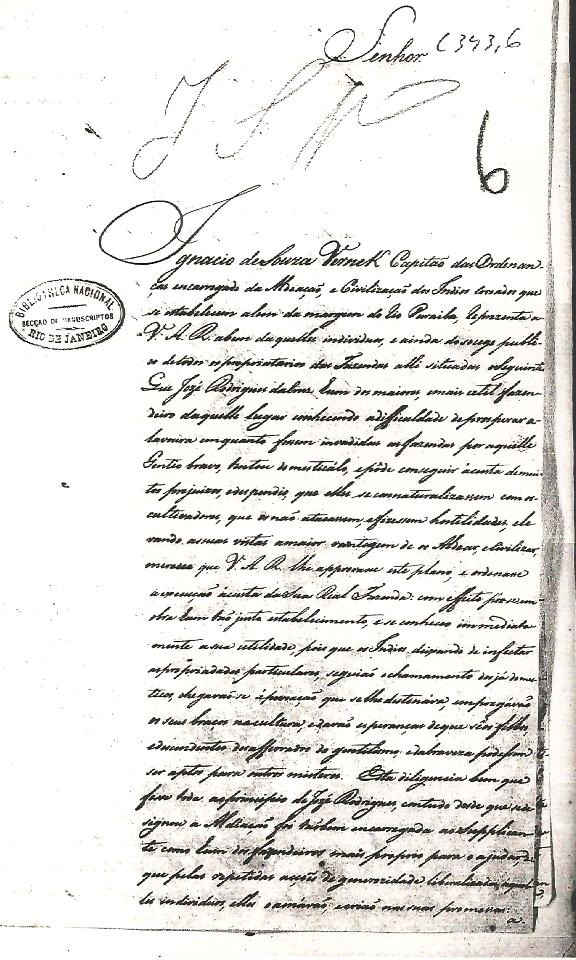 Senhor
C 343,6
6
BIBLIOTHECA NACIONAL
SECÇÃO DE MANUSCRIPTOS
RIO DE JANEIRO
Ignacio de Souza Vernek Capitão das Ordenan-
ças encarregado da Aldeação, e Civilização dos Indios coroados que
se estabelecem alem da margem do Rio Paraiba, Reprezenta a
V. A. R. a bem daquelles individuos, e ainda do socego publi-
co de todos os proprietarios das Fazendas alli situadas o seguinte
Que Jozé Rodrigues da Cruz hum dos maiores, e mais util fazen-
deiro daquelle lugar conhecendo a difficuldade de prosperar a
lavoira em quanto fossem invadidas as fazendas por aquelle
Gentio bravo, tentou domesticálo, e pôde conseguir á custa de mui-
tos prejuizos, e despendio, que elles se connaturalizassem com os
cultivadores, que os não atacassem, e fizessem hostilidades, ele
vando as suas vistas a maior vantagem de os Aldear, e Civilizar,
mereceo que V. A. R. lhe approvasse este plano, e ordenasse
a execução á custa da Sua Real Fazenda: com effeito poz em
obra hum tão justo estabelecimento, e se conheceo immediata
mente a sua utilidade, pois que os Indios deixando de infestar
as propriedades particulares, seguião o chamamento dos já domes-
ticos, chegavão-se á povoação que se lhe destinára, empregávão
os seus braços na cultura, e davão esperanças de que seus filhos,
e descendentes desafferrados do gentilismo, e da braveza podessem
ser aptos para outros misteres. Esta diligencia bem que
fosse toda ao principio de Jozé Rodrigues, contudo desde que se de
signou a Aldeação foi tambem encarregada ao Supplican-
te como hum dos fazendeiros mais proprios para o ajudar
que pelas repetidas acções de generozidade liberalizadas
les individuos, elles o amávão, e crião nas suas promessas:
a